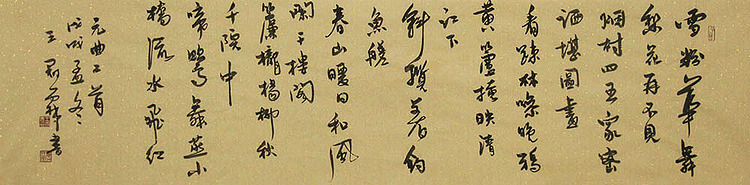 雪粉華舞
梨花再不見
烟村四五家密
洒堪圖畫
看疎林噪晚鴉
黄蘆掩映清
江下
斜纜着釣
魚艖
春山暖日和風
闌干樓閣
簾櫳楊柳秋
千院中
啼鶯舞燕小
橋流水飛紅
元曲二首
戊戌孟冬
王 書